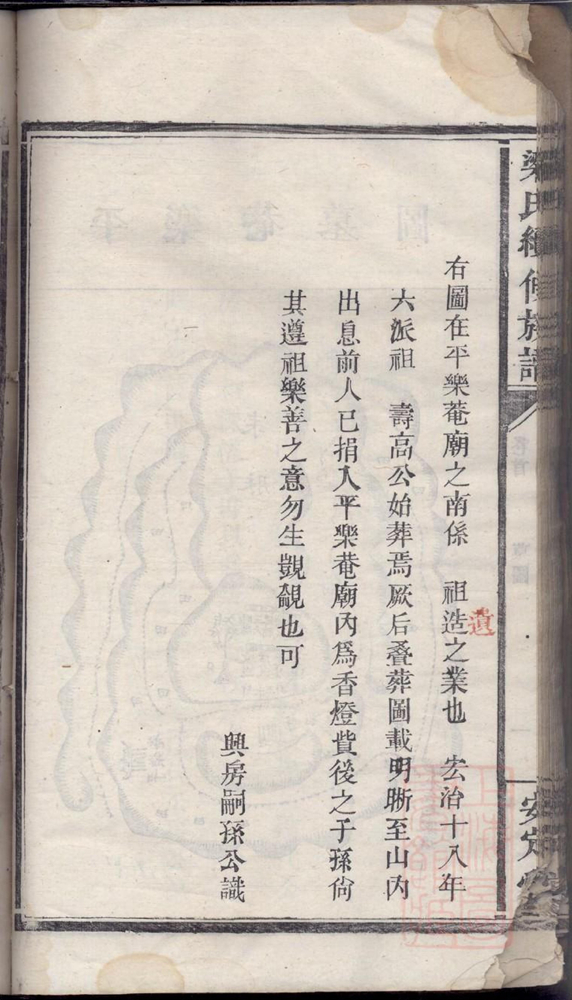 梁氏續修族譜
安定堂
右圖在平樂菴廟之南係 祖造之業也 宏治十八年
遺
六派祖 壽高公始葬焉厥后叠葬圖載明晣至山内
出息前人已捐入平樂菴廟內爲香燈貲後之子孫尙
其遵祖樂善之意勿生覬覦也可
興房嗣孫公識